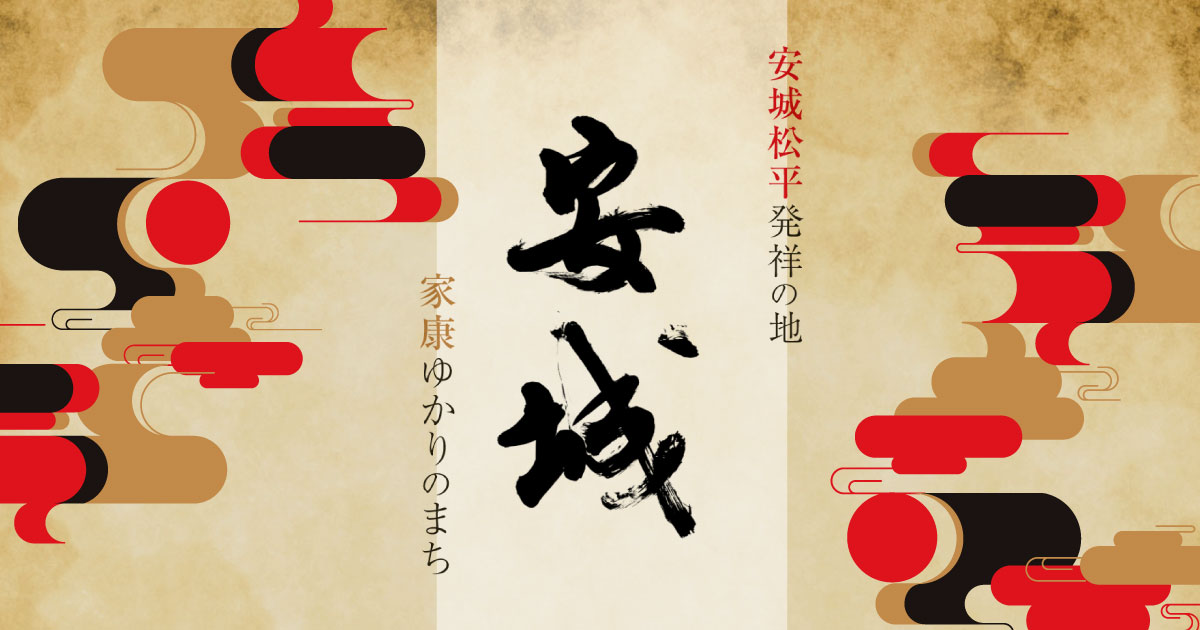 安城松平発祥の地
安城
家康ゆかりのまち